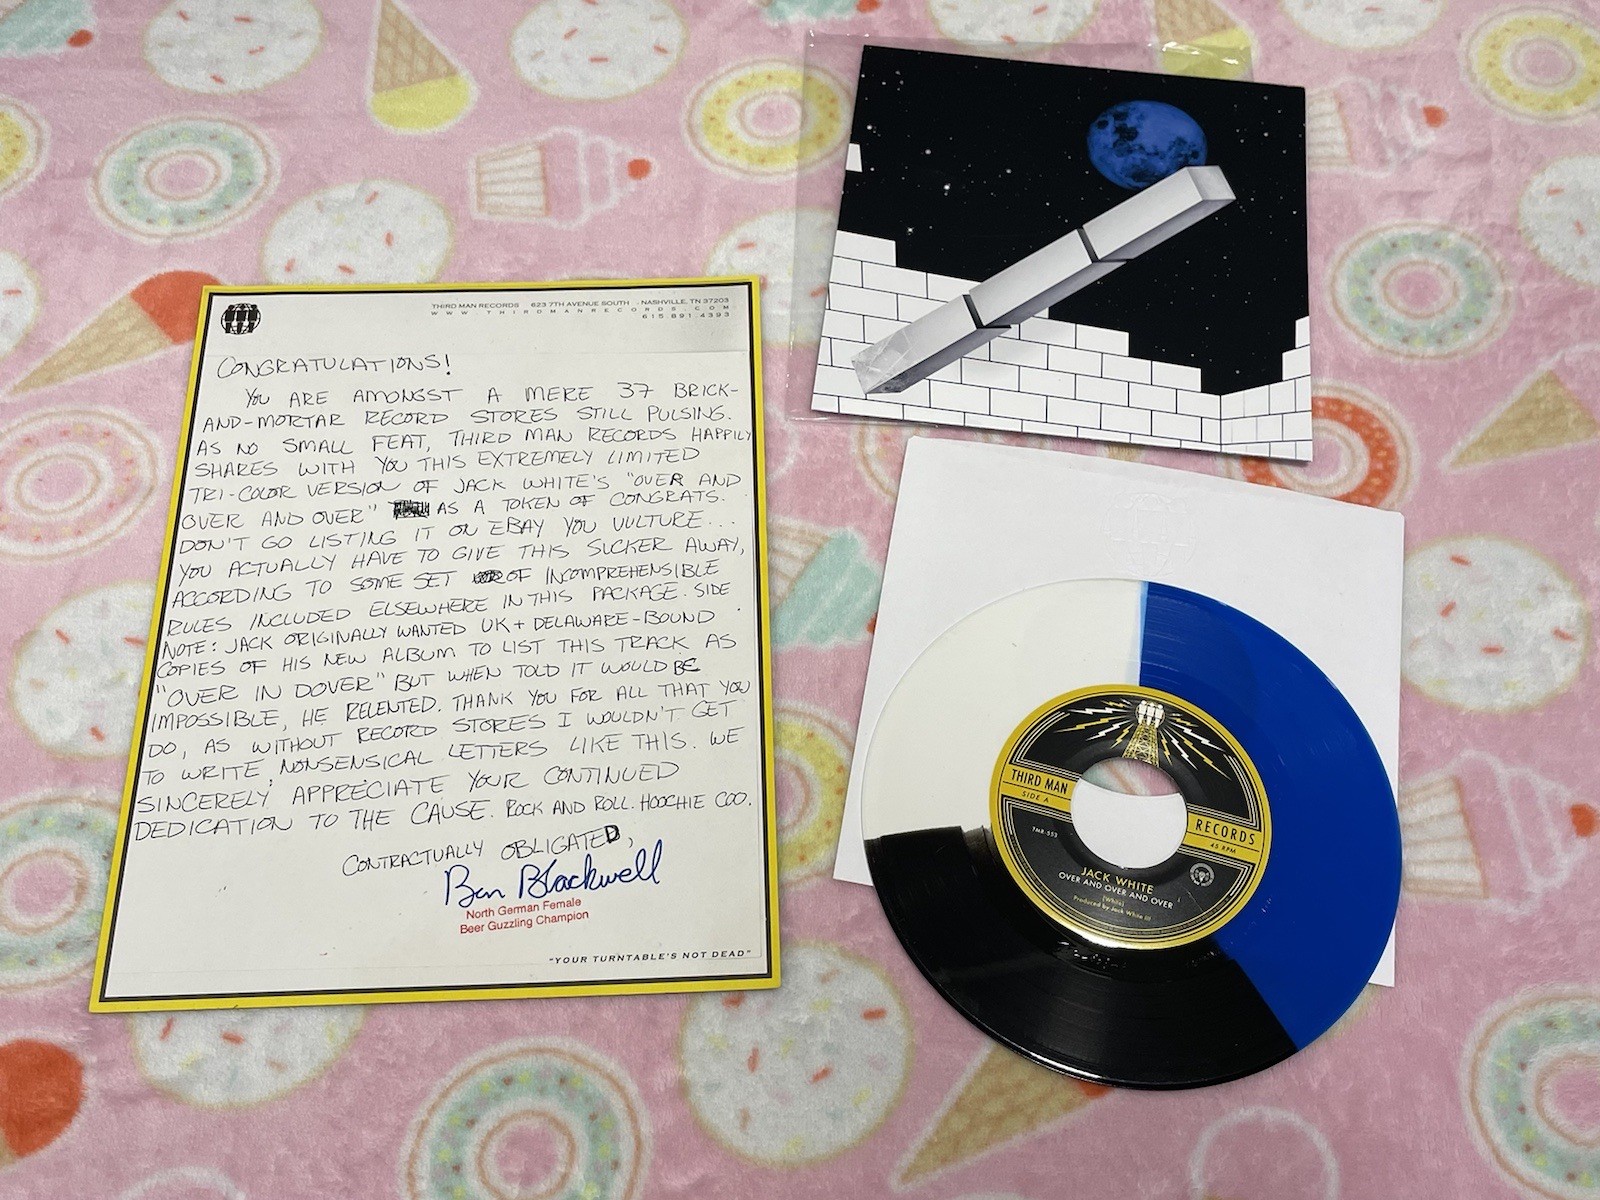 THIRD MAN RECORDS 623 7TH AVENUE SOUTH - NASHVILLE, TN 37203
WWW.THIRDMANRECORDS.COM
615.891.4393
CONGRATULATIONS!
YOU ARE AMONGST A MERE 37 BRICK-
AND-MORTAR RECORD STORES STILL PULSING.
AS NO SMALL FEAT, THIRD MAN RECORDS HAPPILY
SHARES WITH YOU THIS EXTREMELY LIMITED
TRI-COLOR VERSION OF JACK WHITE'S "OVER AND
OVER AND OVER" AS A TOKEN OF CONGRATS.
DON'T GO LISTING IT ON EBAY YOU VULTURE...
YOU ACTUALLY HAVE TO GIVE THIS SUCKER AWAY,
ACCORDING TO SOME SET OF INCOMPREHENSIBLE
RULES INCLUDED ELSEWHERE IN THIS PACKAGE. SIDE
NOTE: JACK ORIGINALLY WANTED UK + DELAWARE-BOUND
COPIES OF HIS NEW ALBUM TO LIST THIS TRACK AS
"OVER IN DOVER" BUT WHEN TOLD IT WOULD BE
IMPOSSIBLE, HE RELENTED. THANK YOU FOR ALL THAT YOU
DO, AS WITHOUT RECORD STORES I WOULDN'T GET
TO WRITE NONSENSICAL LETTERS LIKE THIS. WE
SINCERELY APPRECIATE YOUR CONTINUED
DEDICATION TO THE CAUSE. ROCK AND ROLL. HOOCHIE COO.
CONTRACTUALLY OBLIGATED,
Ben Blackwell
North German Female
Beer Guzzling Champion
"YOUR TURNTABLE'S NOT DEAD"
THIRD MAN RECORDS
SIDE A
45 RPM
TMR-553
JACK WHITE
OVER AND OVER AND OVER
(White)
Produced by Jack White III